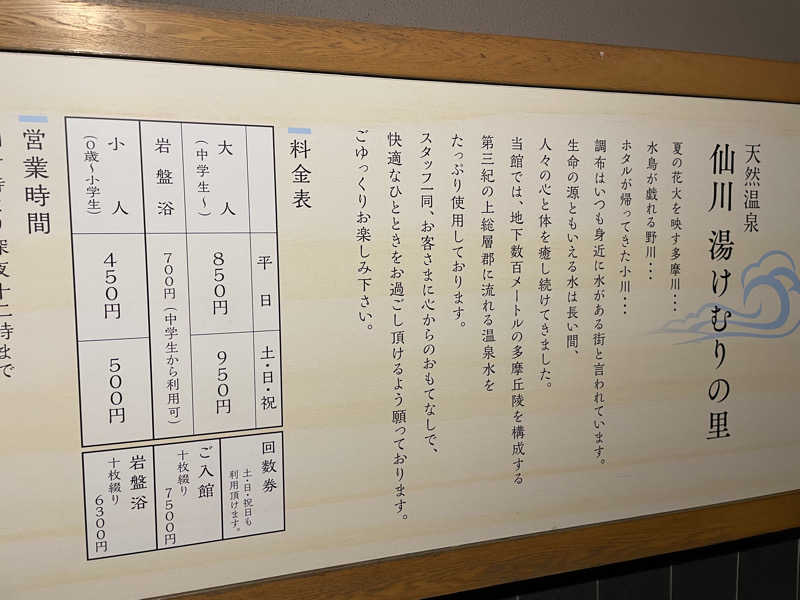 天然温泉
仙川 湯けむりの里
夏の花火を映す多摩川・・・
水鳥が戯れる野川・・・
ホタルが帰ってきた小川・・・
調布はいつも身近に水がある街と言われています。
生命の源ともいえる水は長い間、
人々の心と体を癒し続けてきました。
当館では、地下数百メートルの多摩丘陵を構成する
第三紀の上総層郡に流れる温泉水を
たっぷり使用しております。
スタッフ一同、お客さまに心からのおもてなしで、
快適なひとときをお過ごし頂けるよう願っております。
ごゆっくりお楽しみ下さい。
料金表
平日
土・日・祝
大人
(中学生〜)
850円
950円
岩盤浴
700円(中学生から利用可)
小人
(0歳〜小学生)
450円
500円
回数券
土・日・祝日も
利用頂けます。
ご入館
十枚綴り
7500円
岩盤浴
十枚綴り
6300円
営業時間
時より深夜十二時まで